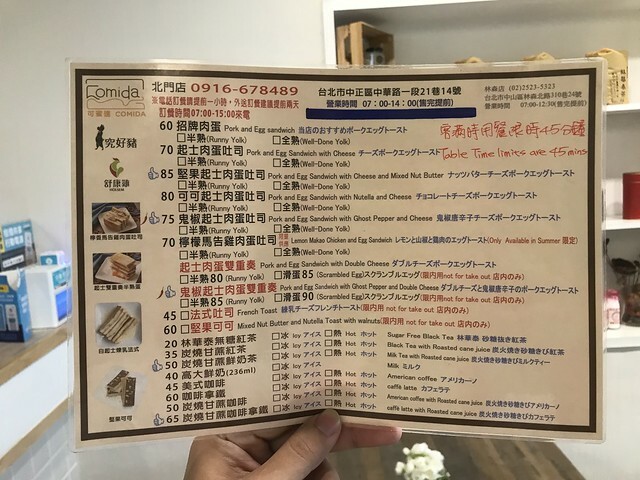 Comida
可蜜達 COMIDA
北門店 0916-678489
台北市中正區中華路一段21巷14號
營業時間 07:00-14:00(售完提前)
林森店 (02)2523-5323
台北市中山區林森北路310巷24號
營業時間 07:00-12:30(售完提前)
※電話訂餐請提前一小時,外送訂餐建議提前兩天
訂餐時間07:00-15:00來電
客滿時用餐限時45分鐘
Table Time limites are 45 mins
究好豬
舒康雞
60 招牌肉蛋 Pork and Egg sandwich 当店のおすすめポークエッグトースト
□半熟(Runny Yolk) □全熟(Well-Done Yolk)
70 起士肉蛋吐司 Pork and Egg Sandwich with Cheese チーズポークエッグトースト
□半熟(Runny Yolk) □全熟(Well-Done Yolk)
85 堅果起士肉蛋吐司 Pork and Egg Sandwich with Cheese and Mixed Nut Butter ナッツバターチーズポークエッグトースト
□半熟(Runny Yolk) □全熟(Well-Done Yolk)
80 可可起士肉蛋吐司 Pork and Egg Sandwich with Nutella and Cheese チョコレートチーズポークエッグトースト
□半熟(Runny Yolk) □全熟(Well-Done Yolk)
75 鬼椒起士肉蛋吐司 Pork and Egg Sandwich with Ghost Pepper and Cheese 鬼椒唐辛子チーズポークエッグトースト
□半熟(Runny Yolk) □全熟(Well-Done Yolk)
70 檸檬馬告雞肉蛋吐司 Lemon Makao Chicken and Egg Sandwich レモンと山椒と鶏肉のエッグトースト(Only Available in Summer 限定)
□半熟(Runny Yolk) □全熟(Well-Done Yolk)
起士肉蛋雙重奏 Pork and Egg Sandwich with Double Cheese ダブルチーズポークエッグトースト
□半熟80(Runny Yolk) □滑蛋85(Scrambled Egg)スクランブルエッグ(限內用not for take out 店内のみ)
鬼椒起士肉蛋雙重奏 Pork and Egg Sandwich with Ghost Pepper and Double Cheese ダブルチーズと鬼椒唐辛子のポークエッグトースト
□半熟85(Runny Yolk) □滑蛋90(Scrambled Egg)スクランブルエッグ(限內用not for take out 店内のみ)
45 □法式吐司 French Toast 練乳チーズフレンチトースト(限內用not for take out 店内のみ)
60 □堅果可可 Mixed Nut Butter and Nutella Toast with walnuts(限內用not for take out 店内のみ)
20 林華泰無糖紅茶 □冰 Icy アイス □熱 Hot ホット Sugar Free Black Tea 林華泰 砂糖抜き紅茶
35 炭燒甘蔗紅茶 □冰 Icy アイス □熱 Hot ホット Black Tea with Roasted cane juice 炭火焼き砂糖きび紅茶
50 炭燒甘蔗鮮奶茶 □冰 Icy アイス □熱 Hot ホット Milk Tea with Roasted cane juice 炭火焼き砂糖きびミルクティー
40 高大鮮奶(236ml) □冰 Icy アイス □熱 Hot ホット Milk ミルク
45 美式咖啡 □冰 Icy アイス □熱 Hot ホット American coffee アメリカーノ
60 咖啡拿鐵 □冰 Icy アイス □熱 Hot ホット caffè latte カフェラテ
50 炭燒甘蔗咖啡 □冰 Icy アイス □熱 Hot ホット American coffee with Roasted cane juice 炭火焼き砂糖きびアメリカーノ
65 炭燒甘蔗咖啡拿鐵 □冰 Icy アイス □熱 Hot ホット caffè latte with Roasted cane juice 炭火焼き砂糖きびカフェラテ
檸香馬告雞肉蛋吐司
起士肉蛋雙重奏半熟蛋
白起士煉乳法式
堅果可可